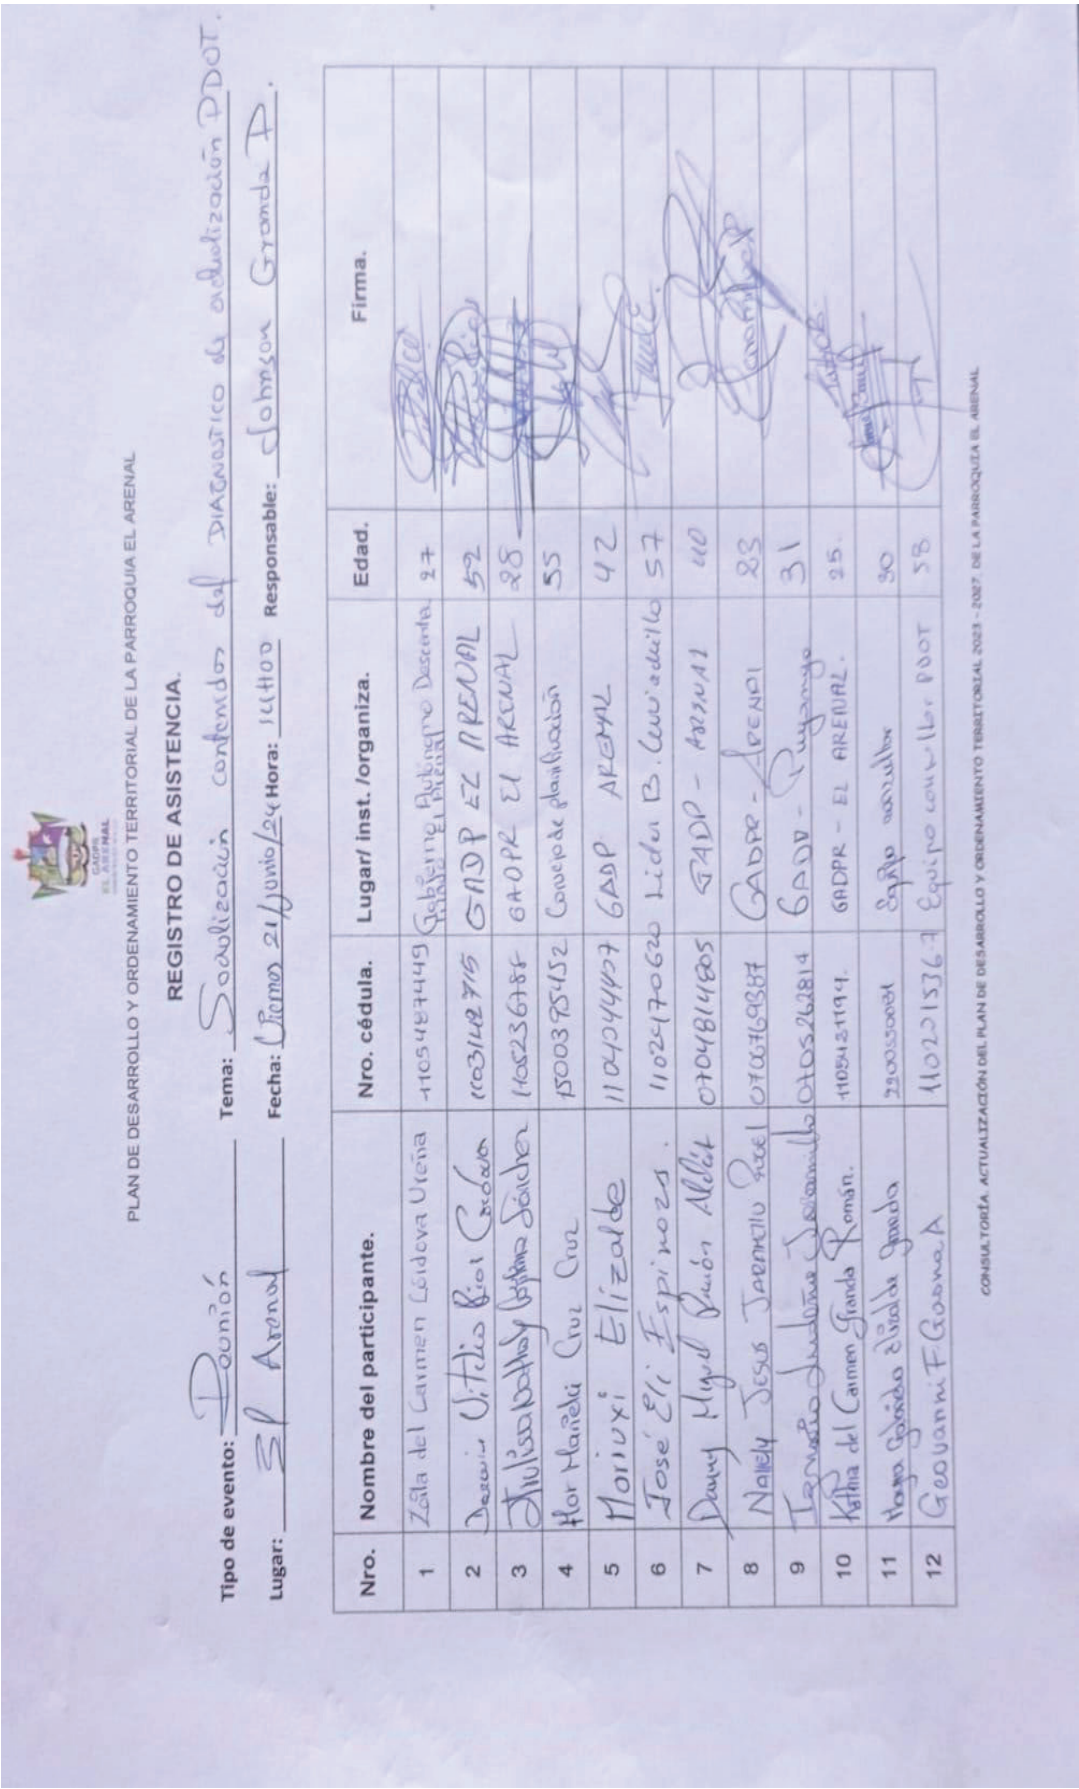 GADPR
EL ARENAL
PLAN DE DESARROLLO Y ORDENAMIENTO TERRITORIAL DE LA PARROQUIA EL ARENAL
REGISTRO DE ASISTENCIA.
Tipo de evento: Reunión Tema: Socialización contenidos del DIAGNOSTICO de actualización PDOT.
Lugar: El Arenal Fecha: Viernes 21/junio/24 Hora: 14H00 Responsable: Johnson Granda P.
Nro. Nombre del participante. Nro. cédula. Lugar/ inst. /organiza. Edad. Firma.
1 Zoila del Carmen Córdova Ureña 1105487449 Gobierno Autónomo Descentra. El Arenal 27
2 Vitilio Rios Córdova 1103142715 GADP EL ARENAL 52
3 Julissa Nathaly Sánchez 1105236788 GADPR El ARENAL 28
4 Flor Mariela Cruz Cruz 1500395452 Concejo de planificación 55
5 Moriuxi Elizalde 1104044407 GADP ARENAL 42
6 José Eli Espinoza. 1102470620 Lider B. 57
7 Danny Miguel 0704814805 GADP - ARENAL 40
8 Nahely Jesus Jaramillo 0706769387 GADPR - Arenal 23
9 Ludeña Jaramillo 0705262814 GADP - Puyango 31
10 Kathia del Carmen Granda Román. 1105431194. GADPR - EL ARENAL. 25.
11 Elizalde Granda consultor 30
12 Geovanni F Gaona A 1102015367 Equipo consultor PDOT 58
CONSULTORÍA. ACTUALIZACIÓN DEL PLAN DE DESARROLLO Y ORDENAMIENTO TERRITORIAL 2023 - 2027, DE LA PARROQUIA EL ARENAL